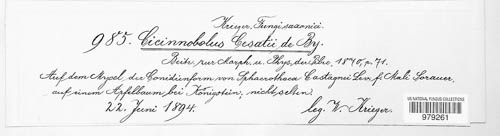 Krieger, Fungi saxonici.
985. Cicinnobolus Cesatii de By.
Beitr. zur Morph. u. Phys. der Pilze, 1870, p. 71.
Auf dem Mycel der Conidienform von Sphaerotheca Castagnei Lev. f. Mali Sorauer,
auf einem Apfelbaum bei Königstein, nicht selten.
22. Juni 1894. leg. W. Krieger.
US NATIONAL FUNGUS COLLECTIONS
979261